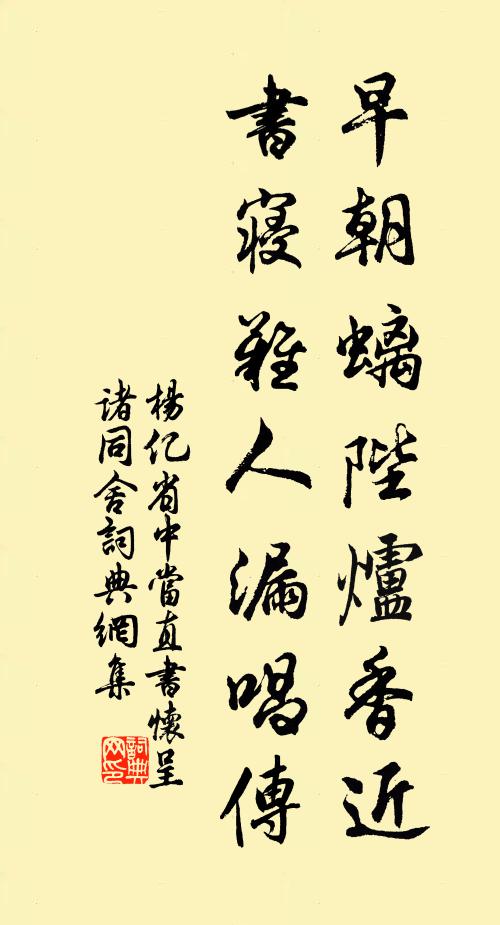 早朝螭陛爐香近
書寢雞人漏唱傳
楊億省中當直書懷呈
諸同舍詞典網集
詞典
網印